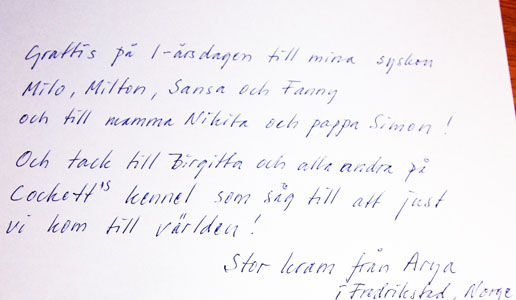 Grattis på 1-årsdagen till mina syskon
Milo, Milton, Sansa och Fanny
och till mamma Nikita och pappa Simon!
Och tack till Birgitta och alla andra på
Cockett's kennel som såg till att just
vi kom till världen!
Stor kram från Arya
i Fredrikstad, Norge